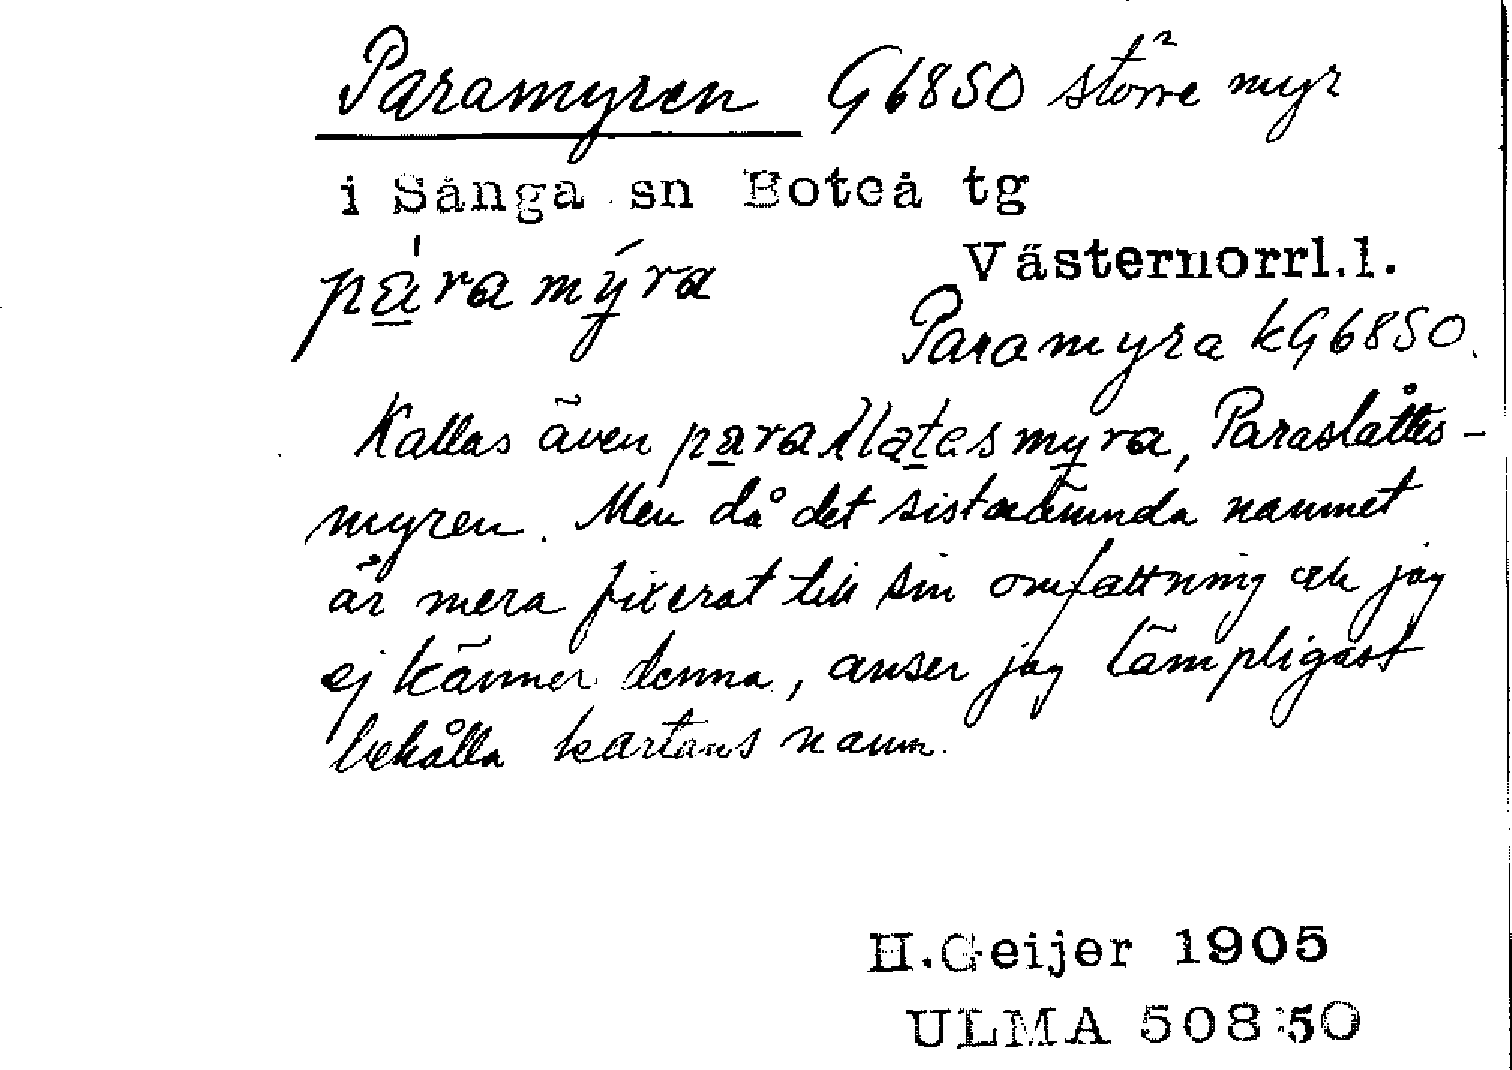 Paramyren G6850 större myr
i Sånga sn Boteå tg
páramýra
Västernorrl.l.
Paramyra kG6850.
Kallas även paraslatesmyra, Paraslåttes-
myren. Men då det sistnämnda namnet
är mera fixerat till sin omfattning och jag
ej känner denna, anser jag lämpligast
behålla kartans namn.
H.Geijer 1905
ULMA 508:50